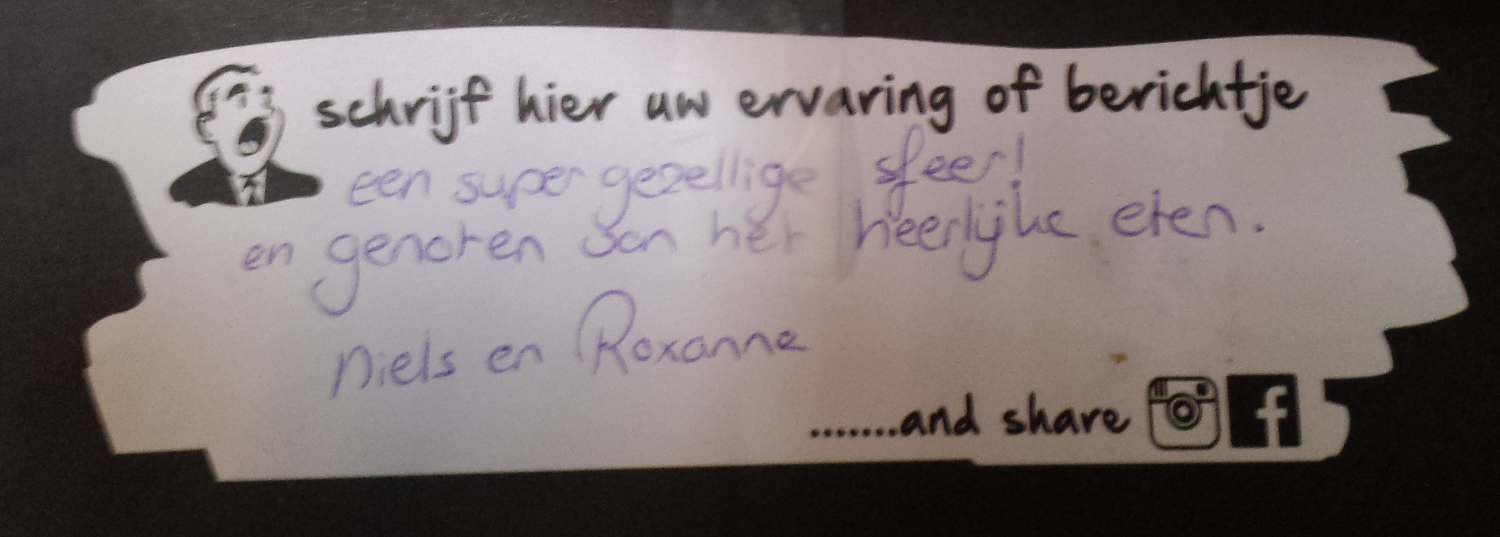 schrijf hier uw ervaring of berichtje
een super gezellige sfeer!
en genoten van het heerlijke eten.
Niels en Roxanne
.......and share